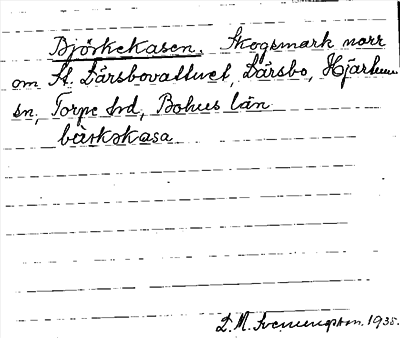 Björkekasen. Skogsmark norr
om St. Lärsbovattnet, Lärsbo, Hjärtum
sn, Torpe hd, Bohus län
barkskasa
D. M. Svenungsson. 1935.